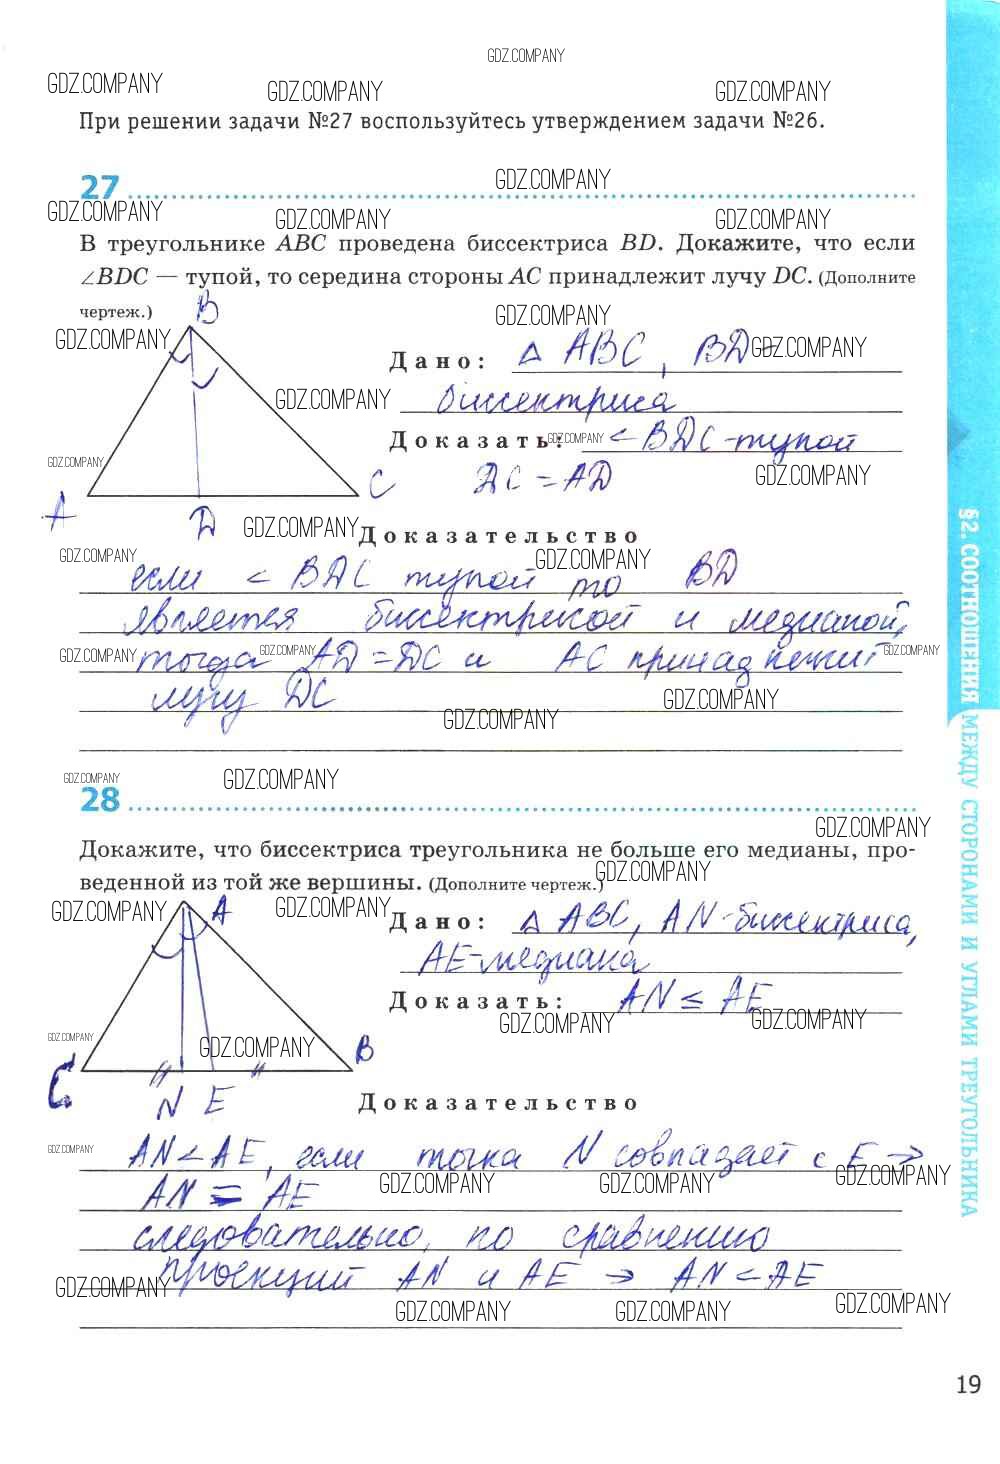 GDZ.COMPANY
GDZ.COMPANY GDZ.COMPANY GDZ.COMPANY
При решении задачи №27 воспользуйтесь утверждением задачи №26.
GDZ.COMPANY
27
GDZ.COMPANY GDZ.COMPANY GDZ.COMPANY
В треугольнике ABC проведена биссектриса BD. Докажите, что если
∠BDC — тупой, то середина стороны AC принадлежит лучу DC. (Дополните
чертеж.)
B
GDZ.COMPANY
GDZ.COMPANY
Дано: △ ABC, BD -
GDZ.COMPANY
GDZ.COMPANY
биссектриса
Доказать: < BDC - тупой
GDZ.COMPANY
GDZ.COMPANY
C
DC = AD
GDZ.COMPANY
A
D
GDZ.COMPANY
Доказательство
GDZ.COMPANY GDZ.COMPANY
если < BDC тупой то BD
является биссектрисой и медианой,
тогда AD = DC и AC принадлежит
GDZ.COMPANY GDZ.COMPANY GDZ.COMPANY
лучу DC
GDZ.COMPANY
GDZ.COMPANY
GDZ.COMPANY GDZ.COMPANY
28
GDZ.COMPANY
Докажите, что биссектриса треугольника не больше его медианы, про-
веденной из той же вершины. (Дополните чертеж.)
GDZ.COMPANY
GDZ.COMPANY GDZ.COMPANY
A
Дано: △ ABC, AN - биссектриса,
AE - медиана
Доказать: AN ≤ AE
GDZ.COMPANY GDZ.COMPANY
GDZ.COMPANY GDZ.COMPANY
C
B
N E
Доказательство
GDZ.COMPANY
AN < AE, если точка N совпадает с E →
GDZ.COMPANY GDZ.COMPANY GDZ.COMPANY
AN = AE
следовательно, по сравнению
проекций AN и AE → AN < AE
GDZ.COMPANY
GDZ.COMPANY GDZ.COMPANY GDZ.COMPANY
§2. СООТНОШЕНИЯ МЕЖДУ СТОРОНАМИ И УГЛАМИ ТРЕУГОЛЬНИКА
19